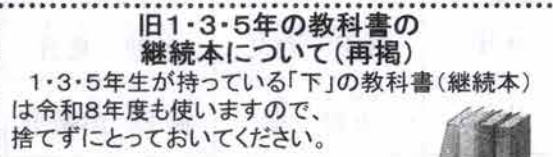 旧1・3・5年の教科書の
継続本について(再掲)
1・3・5年生が持っている「下」の教科書(継続本)
は令和8年度も使いますので、
捨てずにとっておいてください。